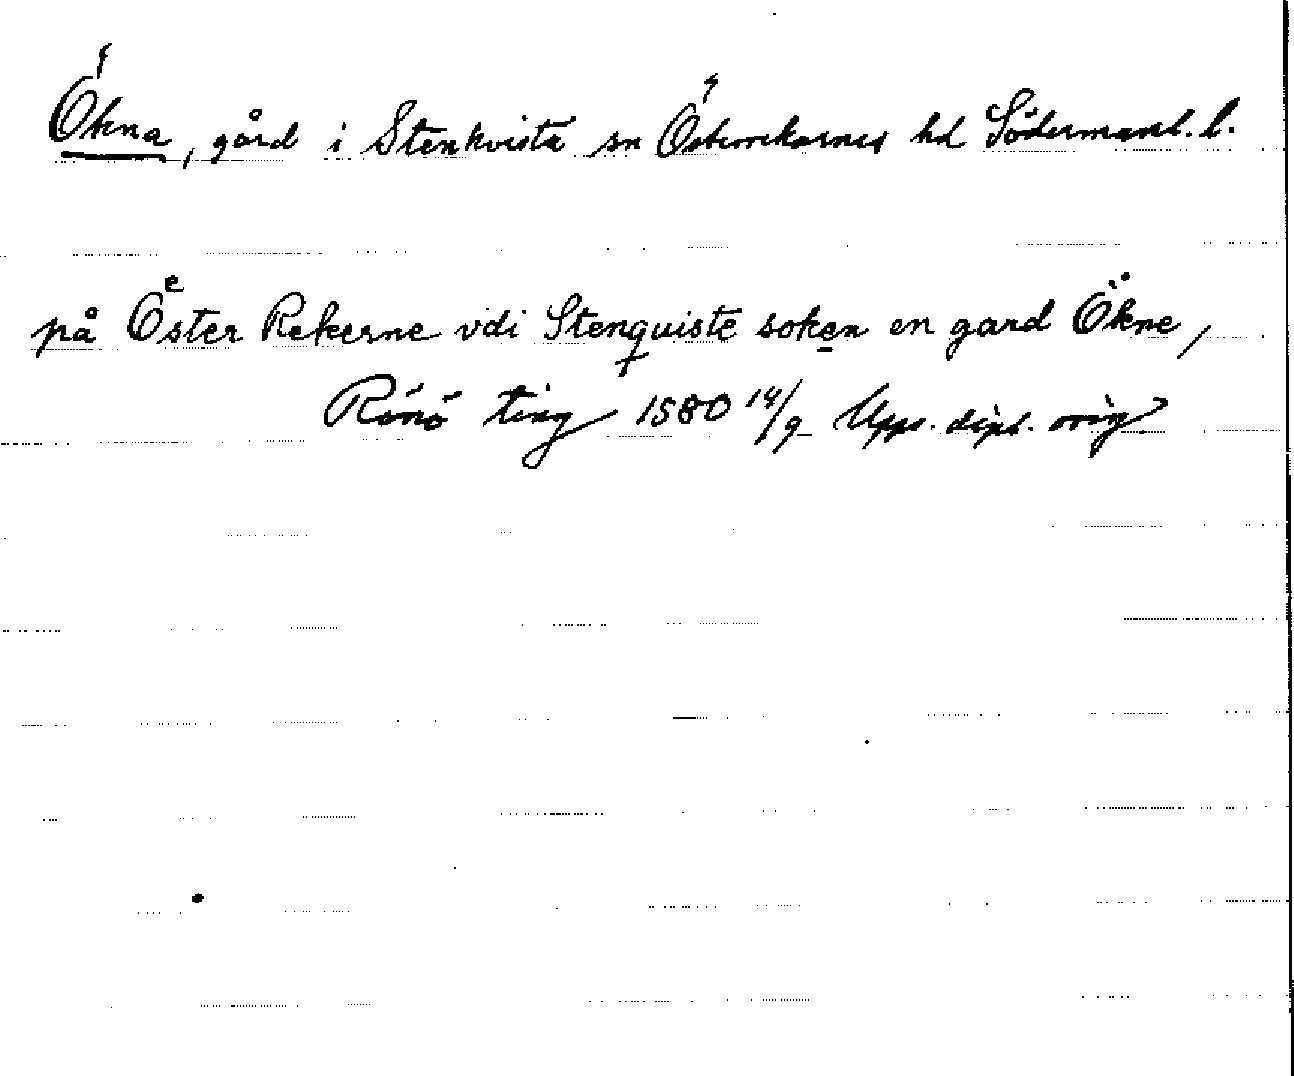 Ökna, gård i Stenkvista sn Österrekarnes hd Södermanl. l.
på Oͤster Rekerne vdi Stenquiste soken en gard Ökne,
Rönö ting 1580 14/9 Upps. dipl. orig